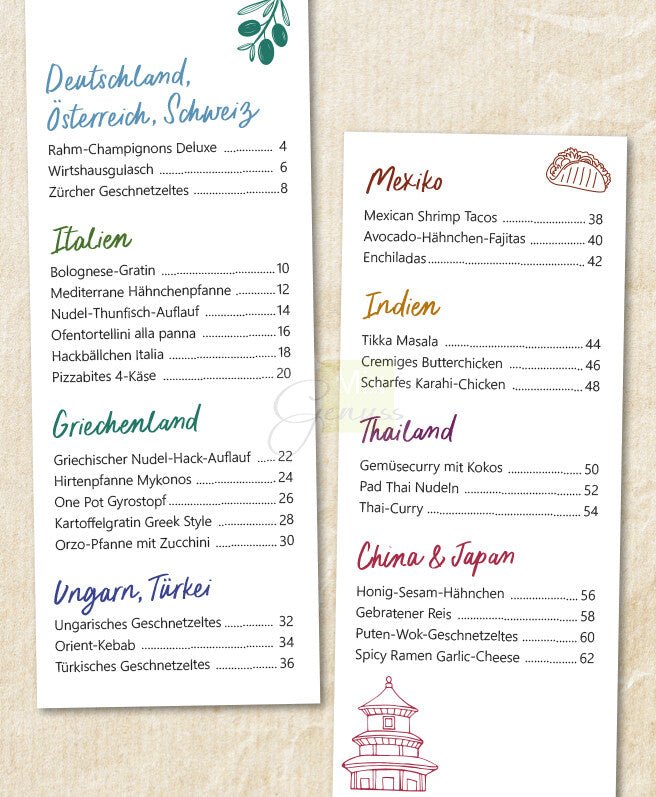 Deutschland,
Österreich, Schweiz
Rahm-Champignons Deluxe .............. 4
Wirtshausgulasch .............. 6
Zürcher Geschnetzeltes .............. 8
Italien
Bolognese-Gratin .............. 10
Mediterrane Hähnchenpfanne .............. 12
Nudel-Thunfisch-Auflauf .............. 14
Ofentortellini alla panna .............. 16
Hackbällchen Italia .............. 18
Pizzabites 4-Käse .............. 20
Griechenland
Griechischer Nudel-Hack-Auflauf ...... 22
Hirtenpfanne Mykonos .............. 24
One Pot Gyrostopf .............. 26
Kartoffelgratin Greek Style .............. 28
Orzo-Pfanne mit Zucchini .............. 30
Ungarn, Türkei
Ungarisches Geschnetzeltes .............. 32
Orient-Kebab .............. 34
Türkisches Geschnetzeltes .............. 36
Mexiko
Mexican Shrimp Tacos .............. 38
Avocado-Hähnchen-Fajitas .............. 40
Enchiladas .............. 42
Indien
Tikka Masala .............. 44
Cremiges Butterchicken .............. 46
Scharfes Karahi-Chicken .............. 48
Thailand
Gemüsecurry mit Kokos .............. 50
Pad Thai Nudeln .............. 52
Thai-Curry .............. 54
China & Japan
Honig-Sesam-Hähnchen .............. 56
Gebratener Reis .............. 58
Puten-Wok-Geschnetzeltes .............. 60
Spicy Ramen Garlic-Cheese .............. 62
Genuss